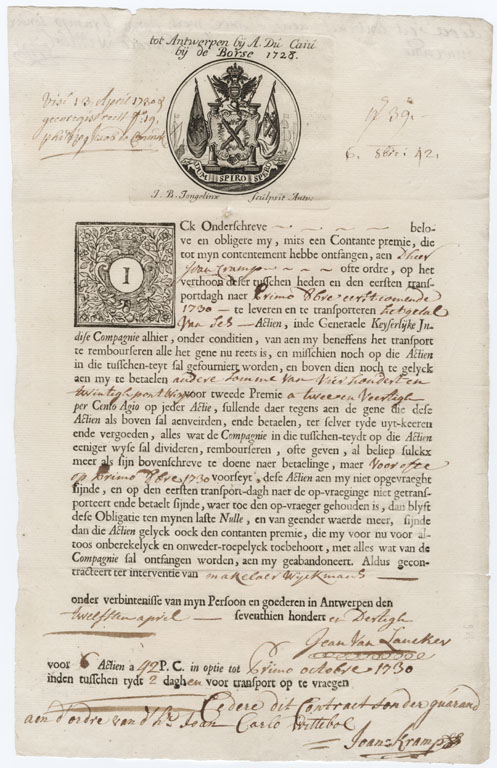 tot Antwerpen bij A. Du Caiú
bij de Borse 1728.
Visé 13 April 1730
geregistreert
N° 39.-
6. 8bre: 42.
DUM SPIRO SPERO
I. B. Jongelinx Sculpsit Antw.
I
CK Onderschreve - - - - belo-
ve en obligere my, mits een Contante premie, die
tot myn contentement hebbe ontfangen, aen D'heer
Joan Cramp - - - ofte ordre, op het
verthoon deser tusschen heden en den eersten trans-
portdagh naer Primo 8bre eerstcomende
1730 — te leveren en te transporteren het getal
van Ses — Actien, inde Generaele Keyserlijke In-
dise Compagnie alhier, onder conditien, van aen my beneffens het transport
te rembourseren alle het gene nu reets is, en misschien noch op die Actien
in die tusschen-teyt sal gefourniert worden, en boven dien noch te gelyck
aen my te betaelen andere somme van vier hondert en
twintigh pont Wis. voor tweede Premie a twee en Veertigh
per Cento Agio op jeder Actie, sullende daer tegens aen de gene die dese
Actien als boven sal aenveirden, ende betaelen, ter selver tyde uyt-keeren
ende vergoeden, alles wat de Compagnie in die tusschen-teydt op die Actien
eeniger wyse sal divideren, rembourseren, ofte geven, al beliep sulckx
meer als sijn bovenschreve te doene naer betaelinge, maer voor ofte
op Primo 8bre 1730 voorseyt, dese Actien aen my niet opgevraeght
sijnde, en op den eersten transport-dagh naer de op-vraeginge niet getrans-
porteert ende betaelt sijnde, waer toe den op-vraeger gehouden is, dan blyft
dese Obligatie ten mynen laste Nulle, en van geender waerde meer, sijnde
dan die Actien gelyck oock den contanten premie, die my voor nu voor al-
toos onberekelyck en onweder-roepelyck toebehoort, met alles wat van de
Compagnie sal ontfangen worden, aen my geabandoneert. Aldus gecon-
tracteert ter interventie van makelaer Wyckmans
onder verbintenisse van myn Persoon en goederen in Antwerpen den
twelfsten april — seventhien hondert en Dertigh
Jean Van Lancker
voor 6 Actien a 42 P. C. in optie tot Primo octobre 1730
inden tusschen tydt 2 daghen voor transport op te vraegen
Cedere dit Contract sonder guarand
aen d'ordre van d'hr Jean Carlo Wittebol
Joan Kramp